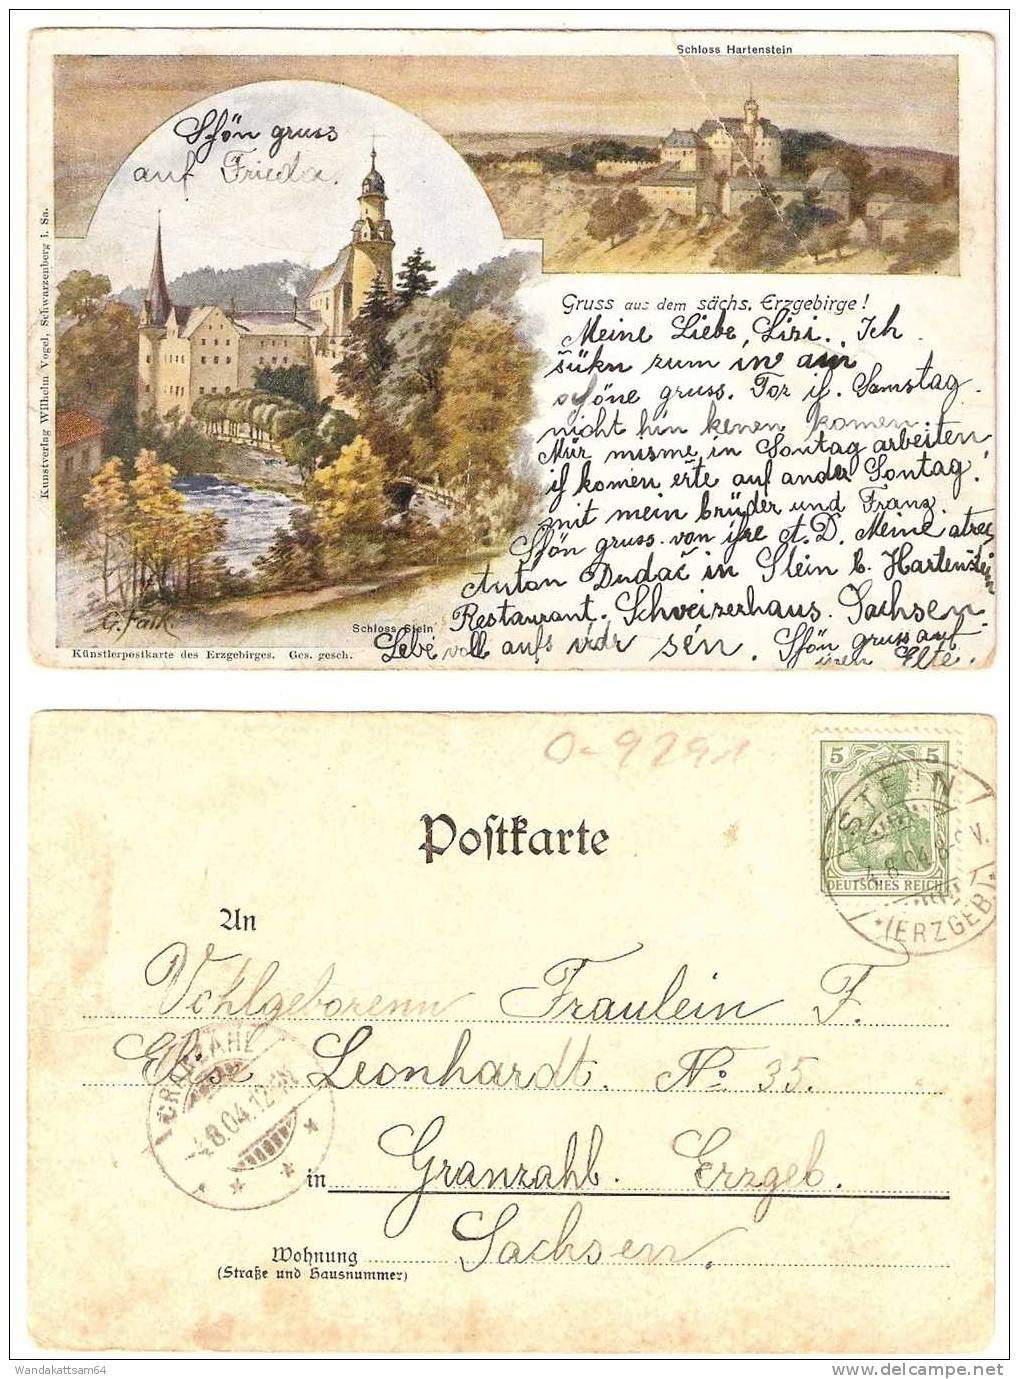 Schloss Hartenstein
Schön gruss
auf Frieda.
Kunstverlag Wilhelm Vogel, Schwarzenberg i. Sa.
Gruss aus dem sächs. Erzgebirge!
Meine Liebe Lizi. Ich
sükn zum in ain
schöne gruss. For if. Samstag
nicht hin kenen komen.
Mür misme in Sontag arbeiten
if komen erte auf ander Sontag.
mit mein brüder und Franz.
Schön gruss von ihre A. D. Meine atrec
Antan Dudač in Stein b. Hartenstein
Restaurant. Schweizerhaus. Sachsen.
Lebe voll aufs vidr sen. Schön gruss auf
üren Elte.
G. Falk.
Schloss Stein
Künstlerpostkarte des Erzgebirges. Ges. gesch.
0-9291
5 5
DEUTSCHES REICH
STEIN
4.8.04. 8-9 V.
*(ERZGEB.)*
Postkarte
An
Vohlgeborenn Fraulein F.
Elise Leonhardt. No 35.
CRANZAHL
4.8.04. 12
in Granzahl. Erzgeb.
Sachsen.
Wohnung
(Straße und Hausnummer)
Wandakattsam64
www.delcampe.net